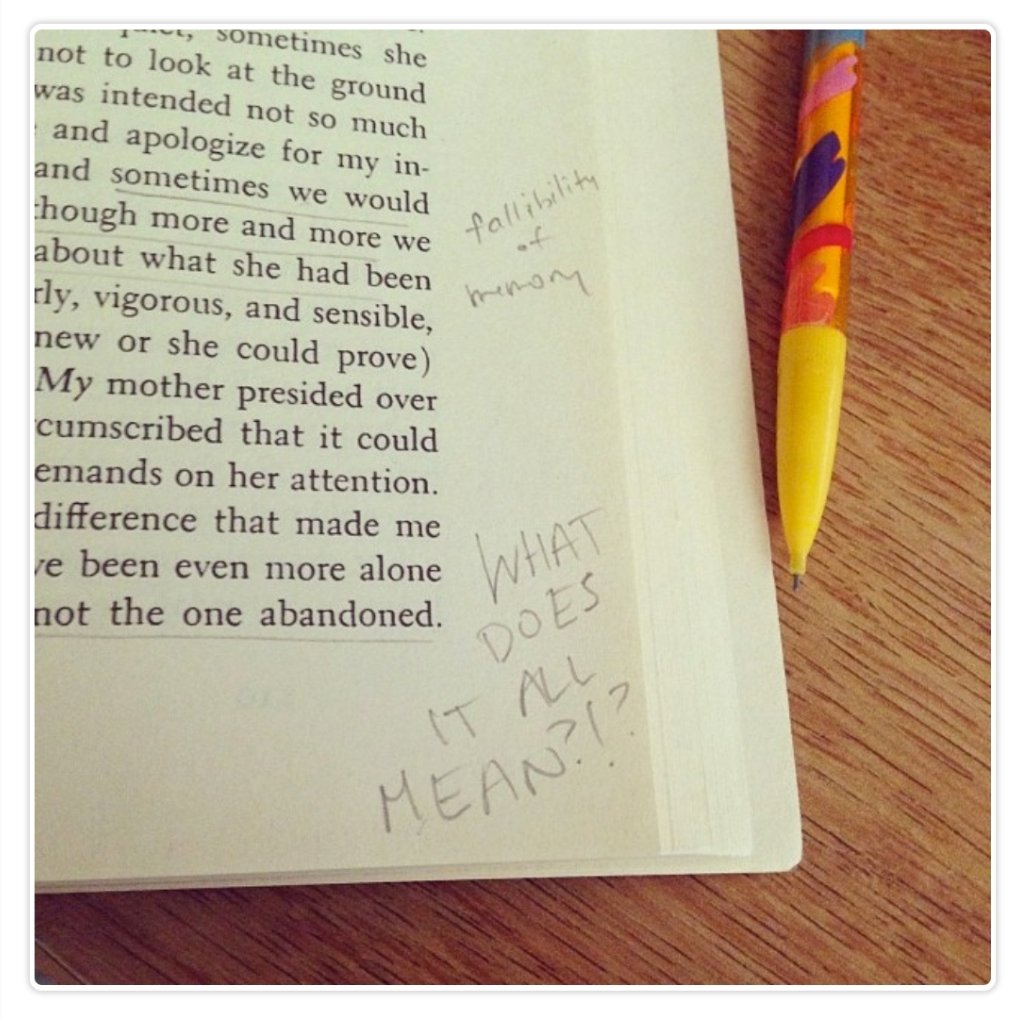 quiet, sometimes she
not to look at the ground
was intended not so much
and apologize for my in-
and sometimes we would
though more and more we
about what she had been
rly, vigorous, and sensible,
new or she could prove)
My mother presided over
cumscribed that it could
emands on her attention.
difference that made me
ve been even more alone
not the one abandoned.
fallibility
of
memory
WHAT
DOES
IT ALL
MEAN?!?